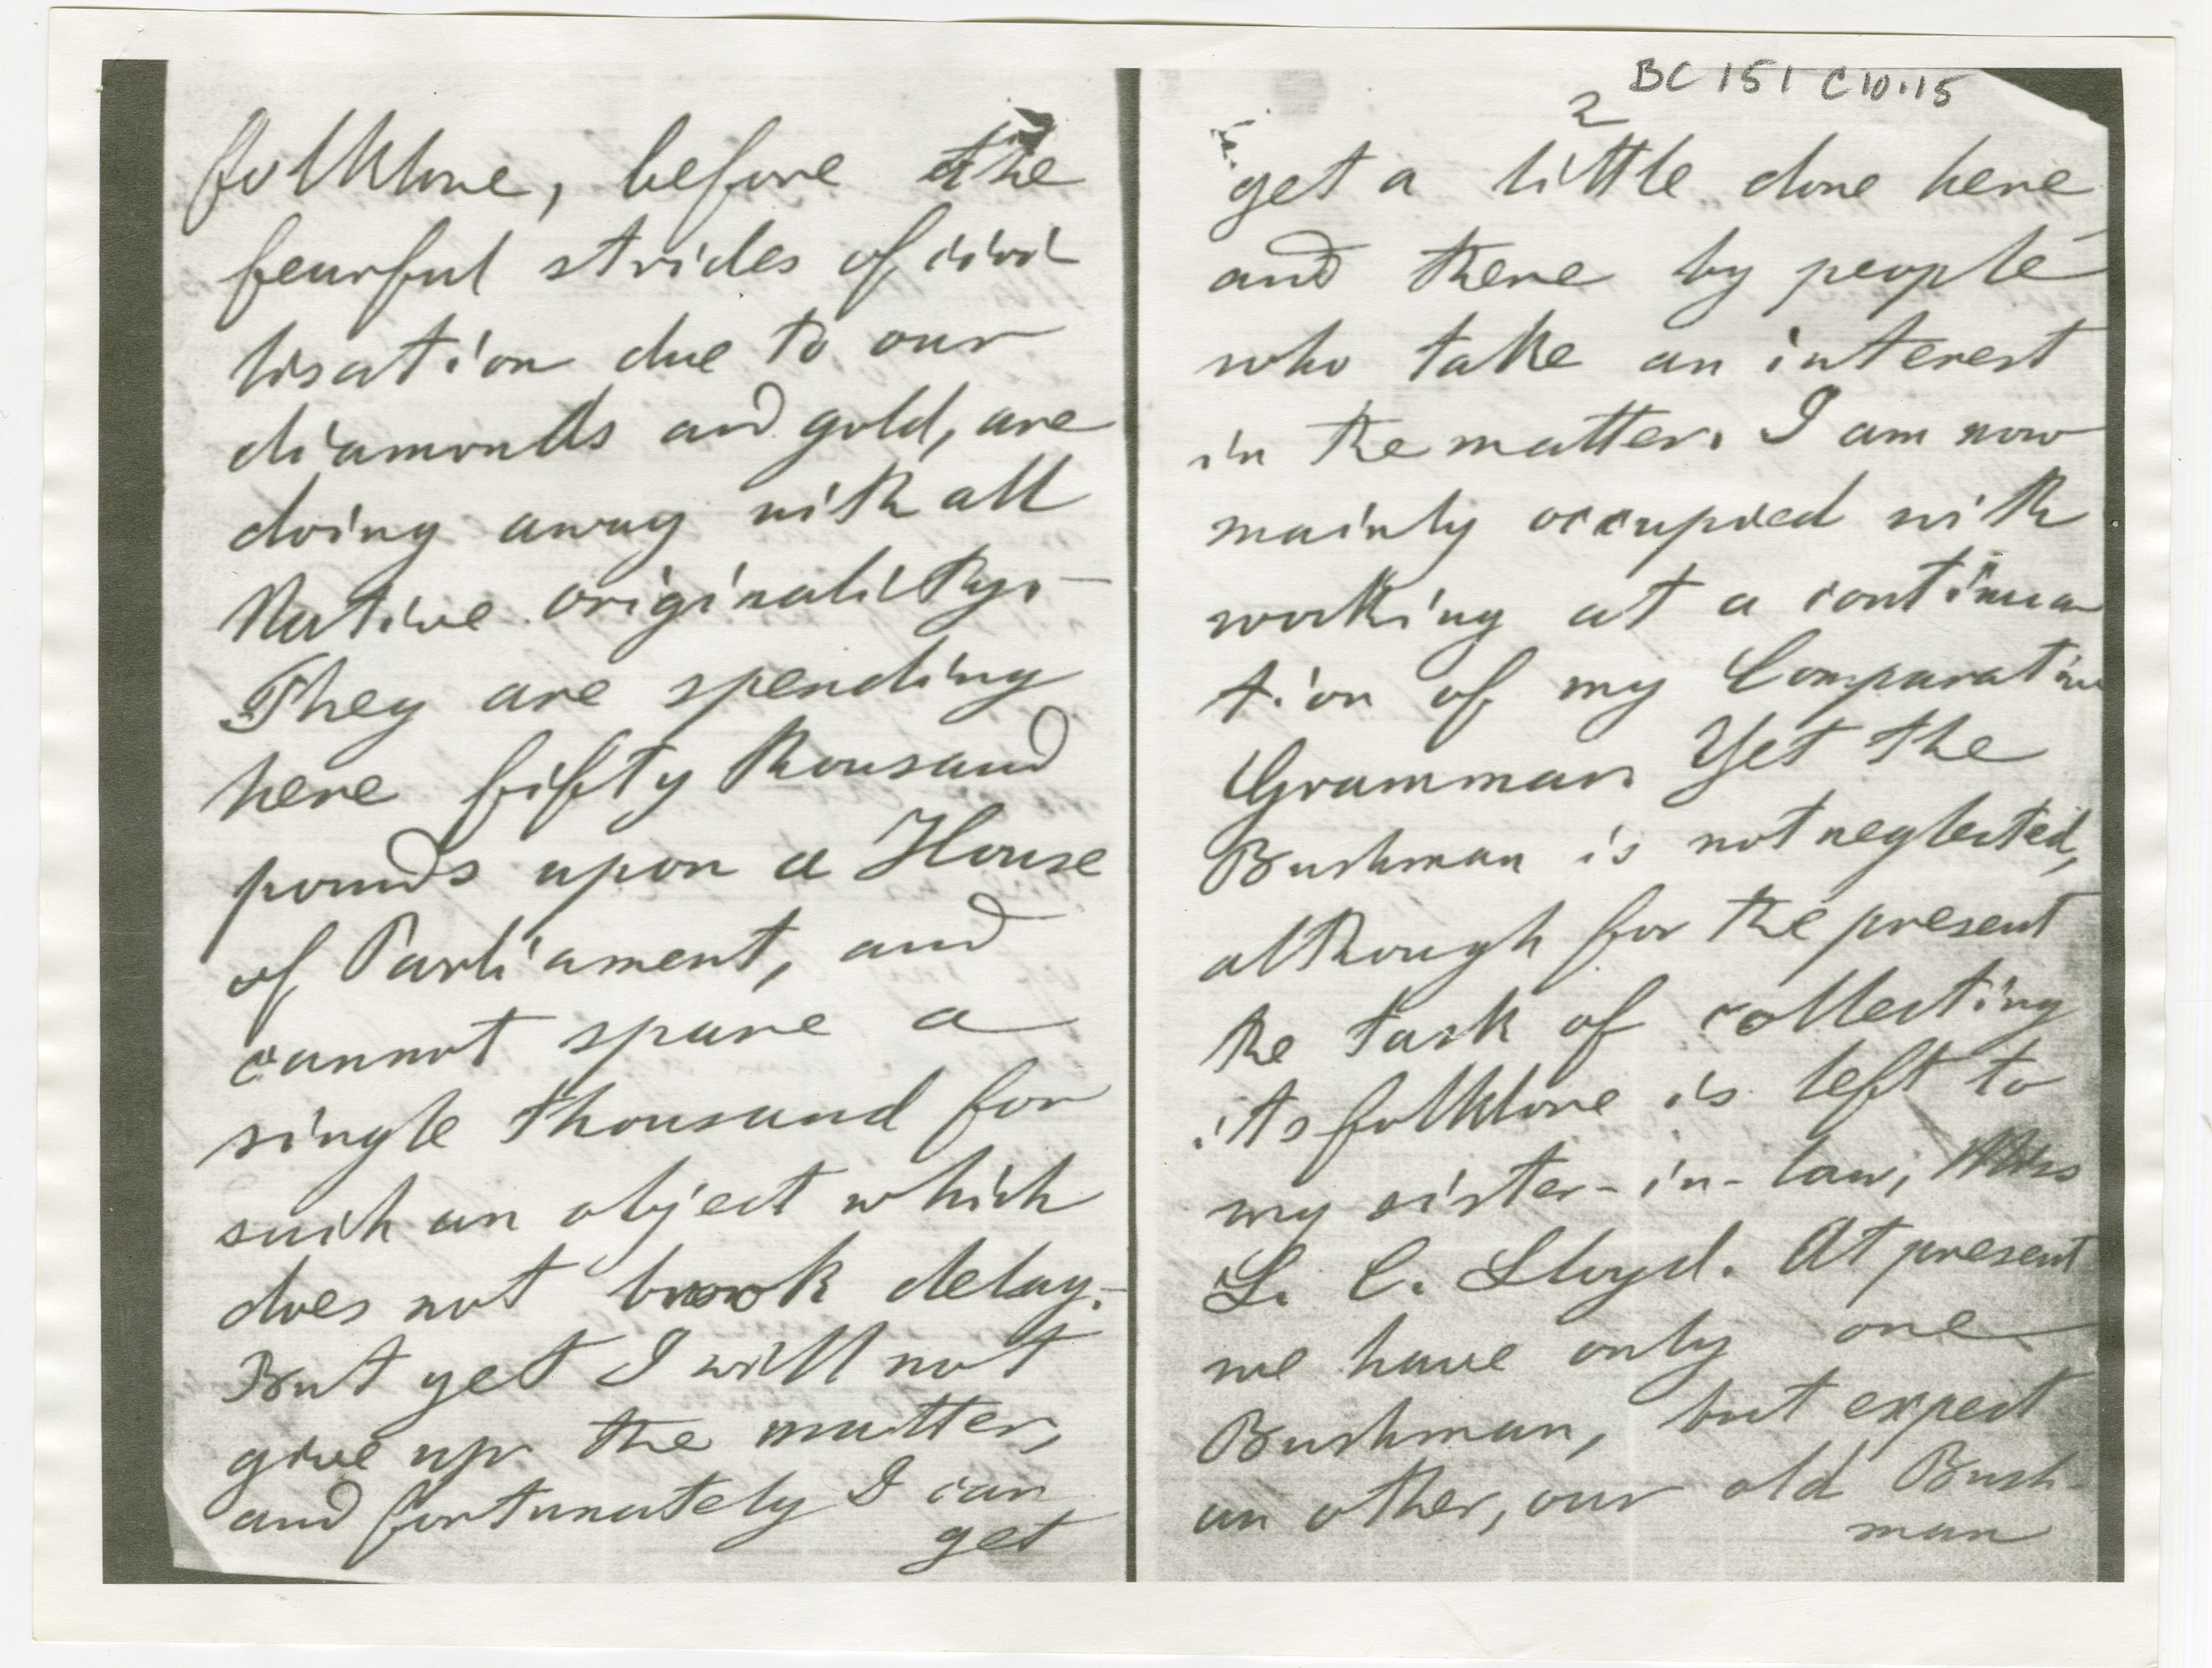 folklore, before the
fearful strides of civi
lisation due to our
diamonds and gold, are
doing away with all
Native originality. –
They are spending
here fifty thousand
pounds upon a House
of Parliament, and
cannot spare a
single thousand for
such an object which
does not brook delay. –
But yet I will not
give up the matter,
and fortunately I can
get
BC 151 C10.15
2
get a little done here
and there by people
who take an interest
in the matter. I am now
mainly occupied with
working at a continua
tion of my Comparative
Grammar. Yet the
Bushman is not neglected,
although for the present
the task of collecting
its folklore is left to
my sister-in-law, Miss
L. C. Lloyd. At present
we have only one
Bushman, but expect
an other, our old Bush-
man